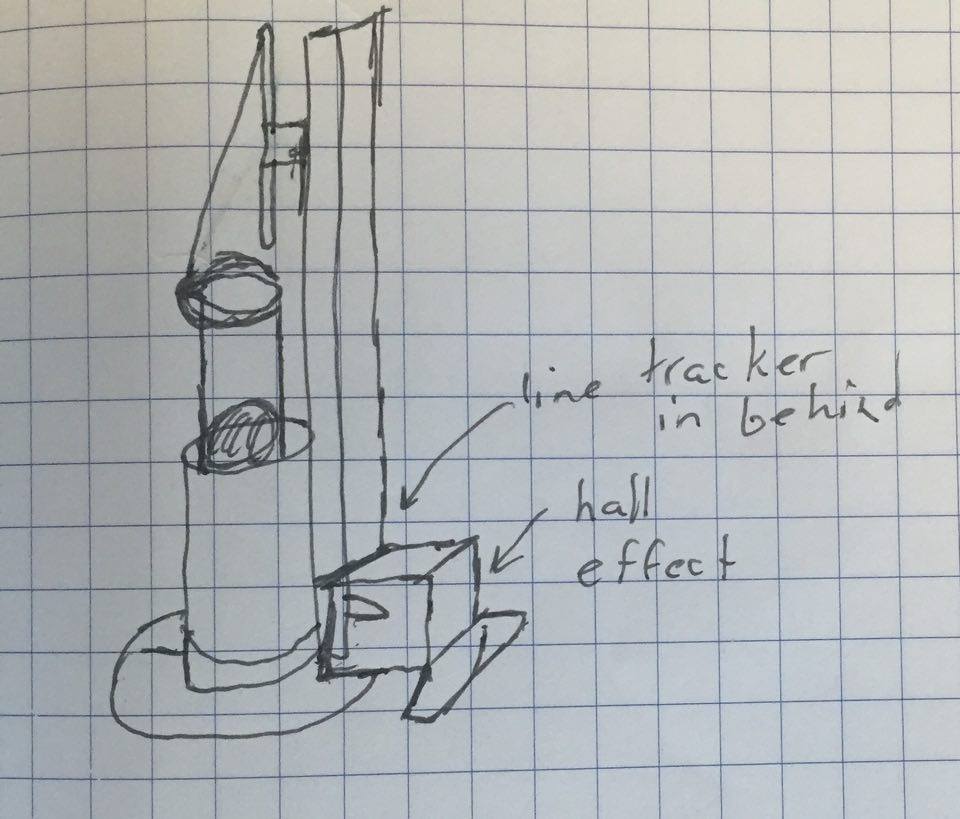 line tracker
in behind
hall
effect